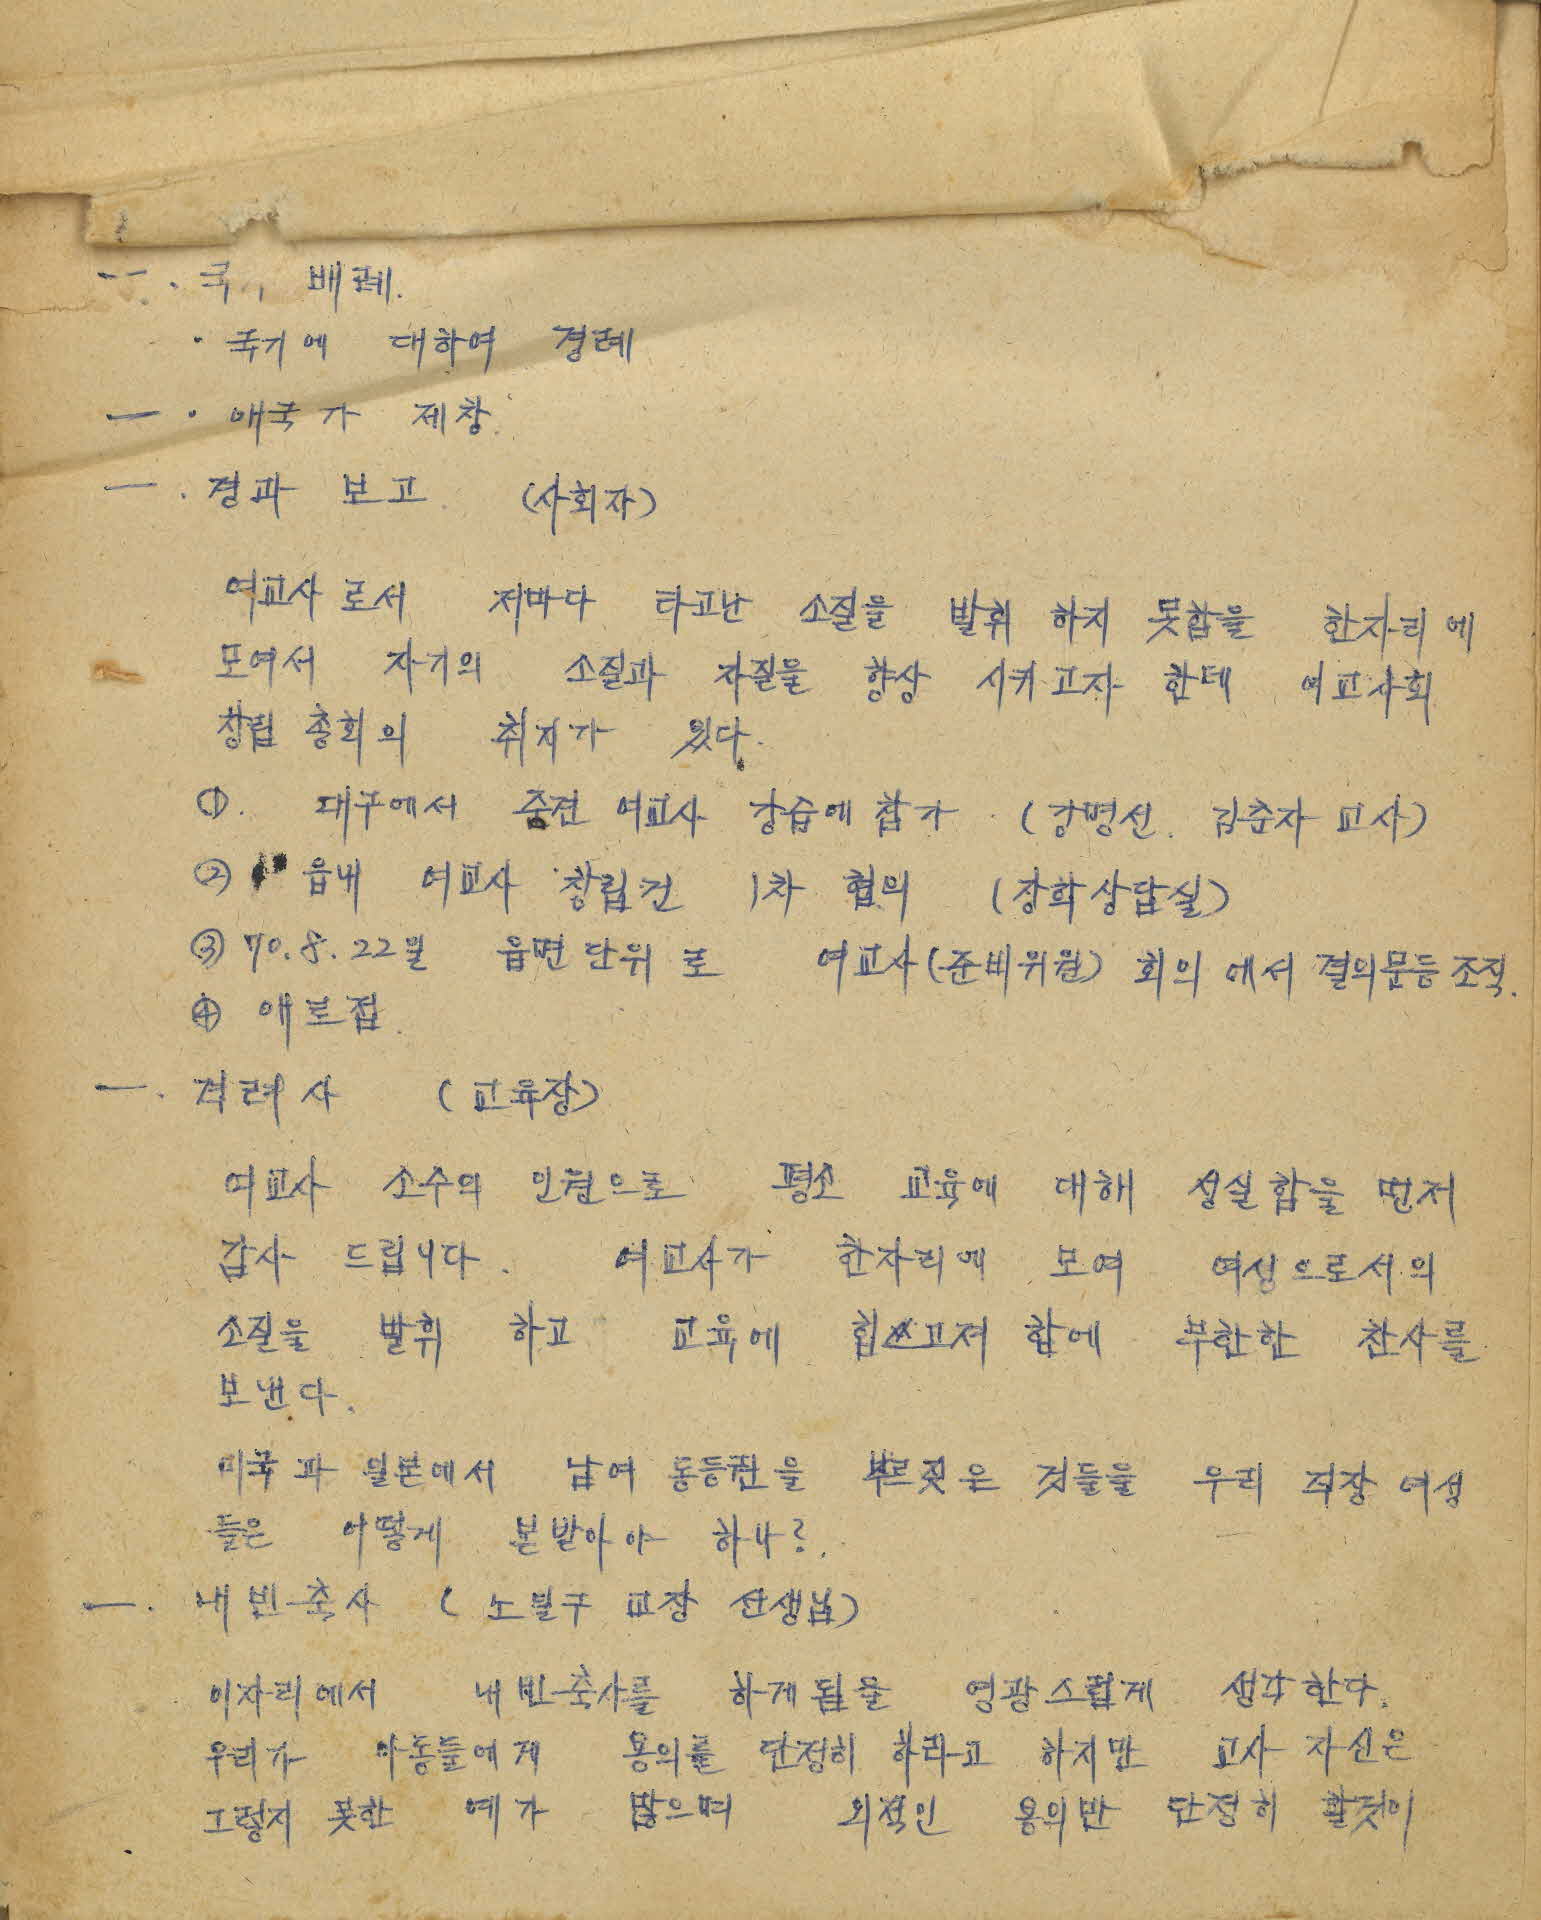 一. 국기 배례.
· 국기에 대하여 경례
一. 애국가 제창.
一. 경과 보고. (사회자)
여교사로서 저마다 타고난 소질을 발휘 하지 못함을 한자리에
모여서 자기의 소질과 자질을 향상 시키고자 한데 여교사회
창립 총회의 취지가 있다.
①. 대구에서 중견 여교사 강습에 참가 (강명선. 김춘자 교사)
② 읍내 여교사 창립건 1차 협의 (장학상담실)
③ 70.8.22일 읍면단위로 여교사(준비위원) 회의에서 결의문등 조직.
④ 애로점.
一. 격려사 (교육장)
여교사 소수의 인원으로 평소 교육에 대해 성실함을 먼저
감사 드립니다. 여교사가 한자리에 모여 여성으로서의
소질을 발휘 하고 교육에 힘쓰고져 함에 무한한 찬사를
보낸다.
미국과 일본에서 남여 동등권을 부르짖은 것들을 우리 직장 여성
들은 어떻게 본받아야 하나?.
一. 내빈축사 (노불구 교장 선생님)
이자리에서 내빈축사를 하게됨을 영광스럽게 생각한다.
우리가 아동들에게 용의를 단정히 하라고 하지만 교사 자신은
그렇지 못한 예가 많으며 외적인 용의만 단정히 할것이